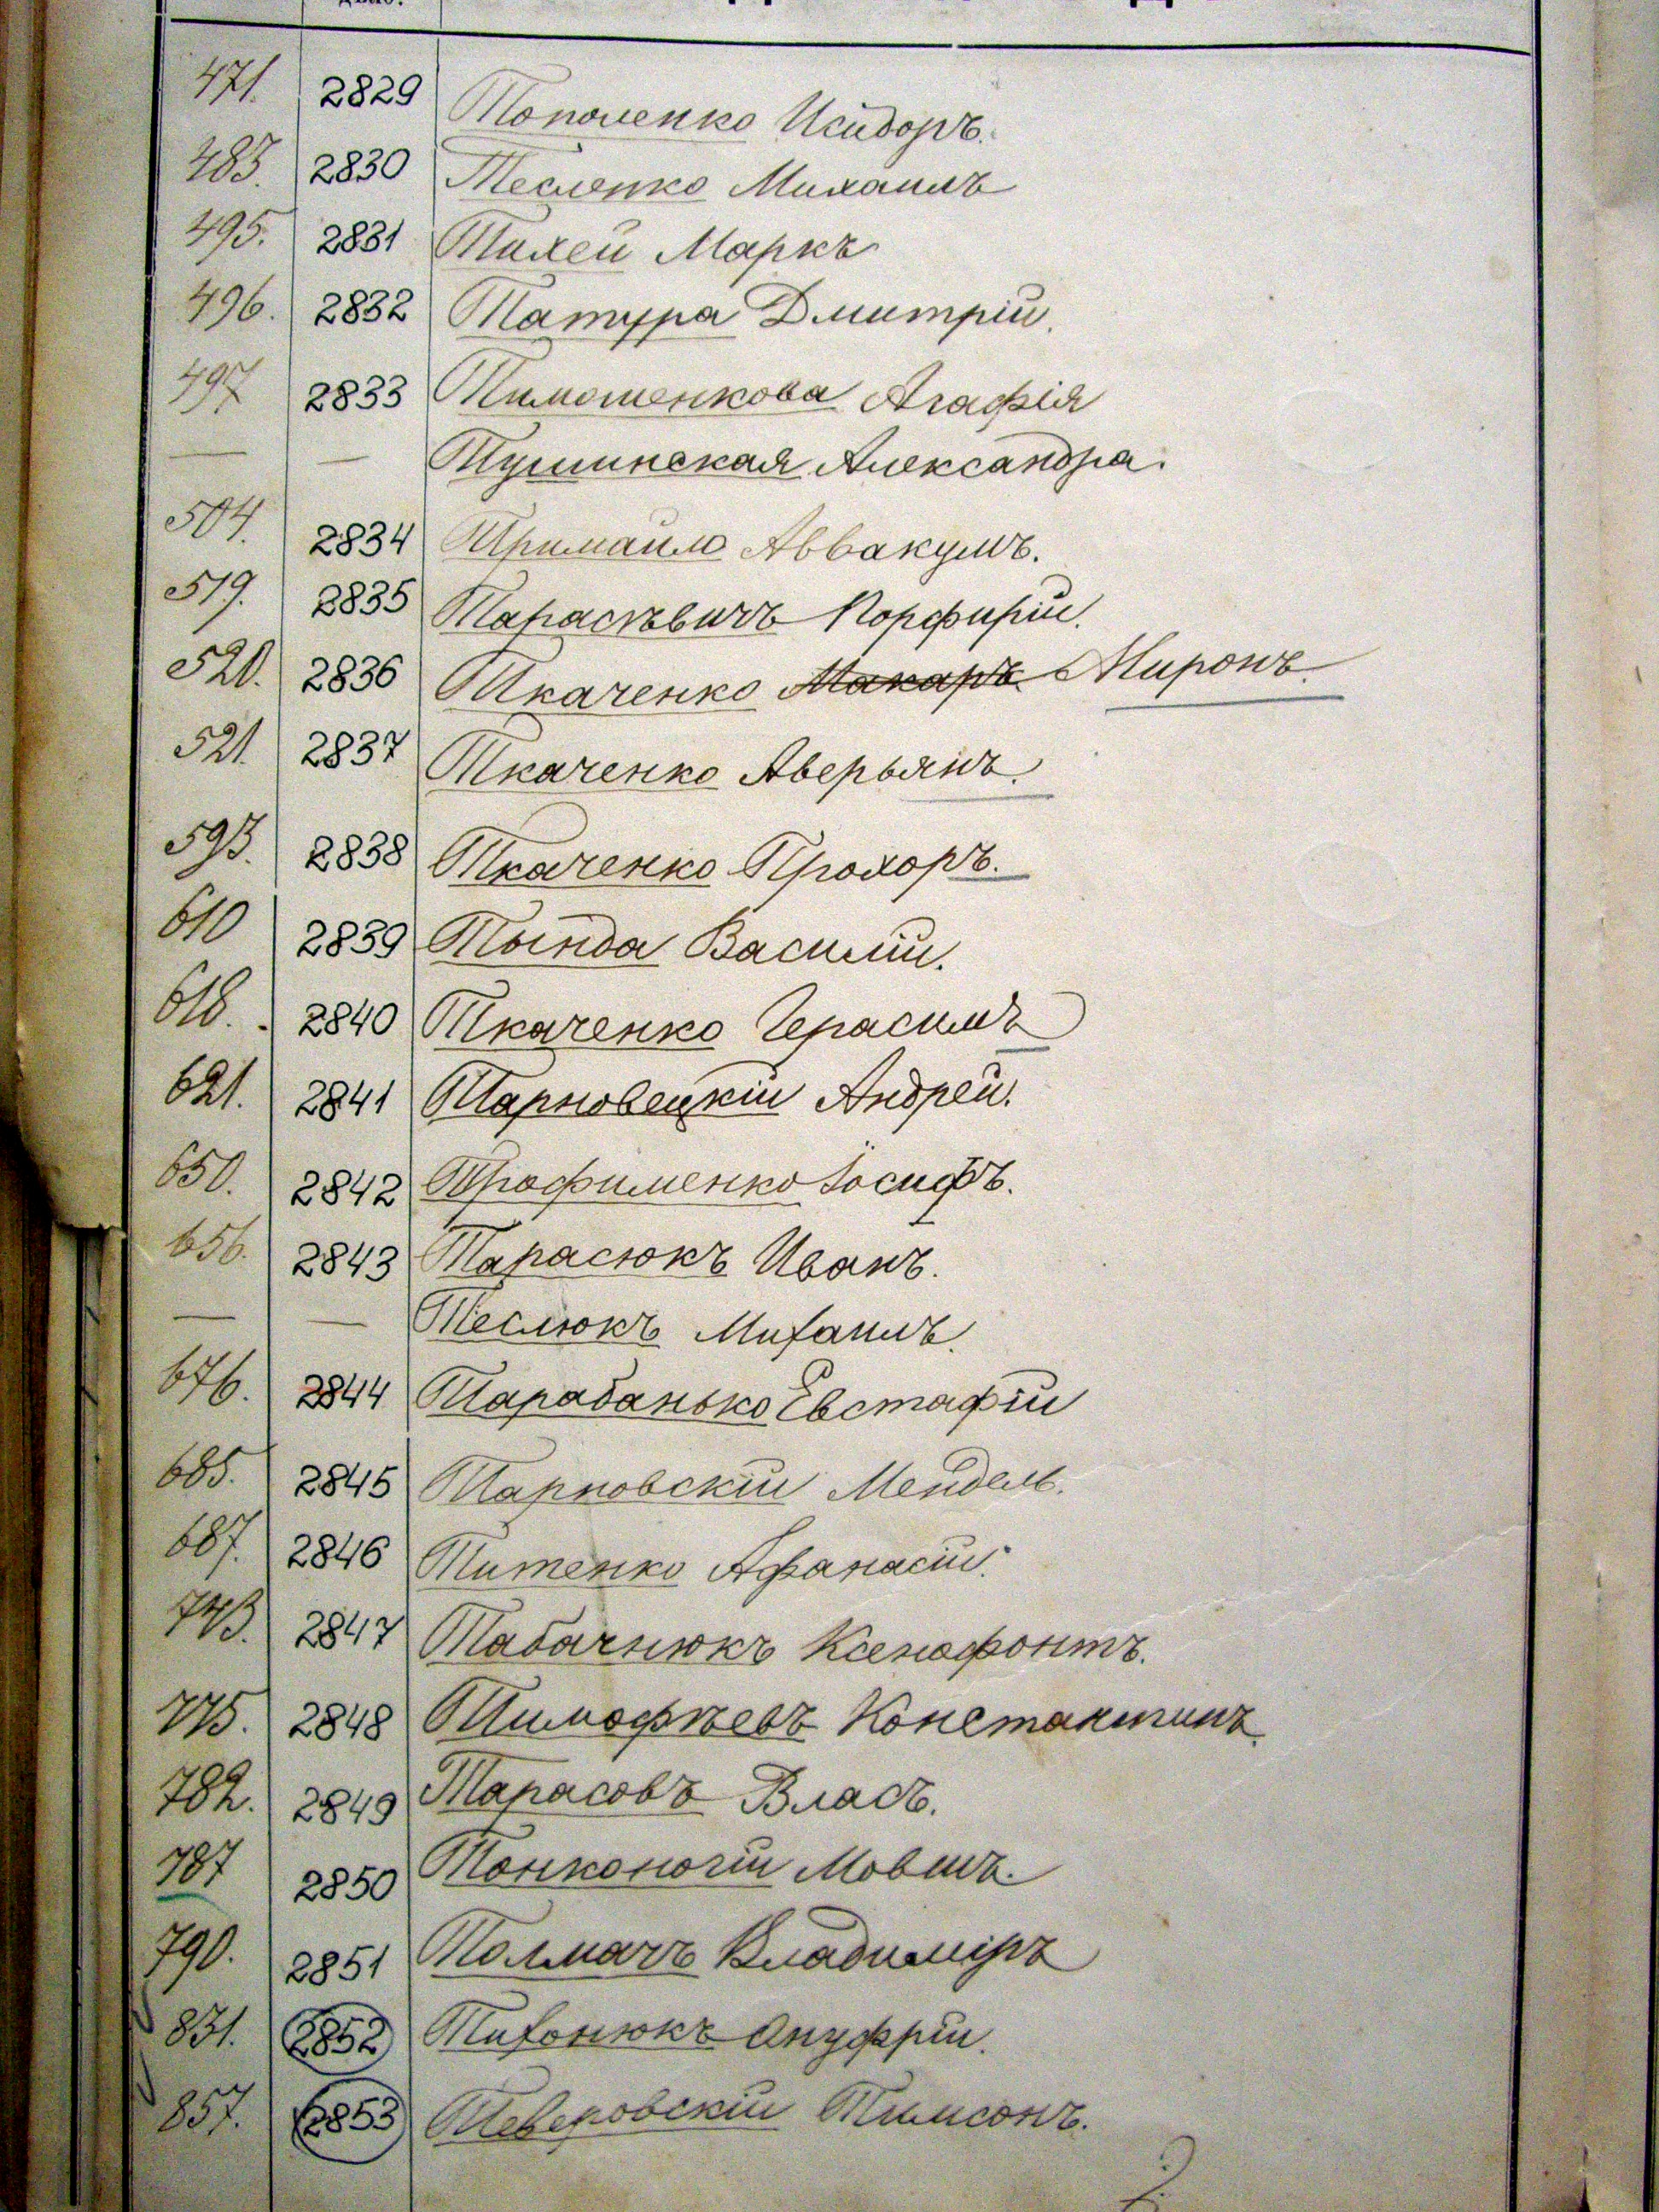 471. 2829 Тополенко Исидоръ.
483. 2830 Тесленко Михаилъ
495. 2831 Тихей Маркъ
496. 2832 Татура Дмитрій.
497 2833 Тимошенкова Агафія
— — Тушинская Александра.
504. 2834 Тримайло Аввакумъ.
519. 2835 Тарасѣвичъ Порфирій.
520. 2836 Ткаченко Макаръ Миронъ.
521. 2837 Ткаченко Аверьянъ.
593. 2838 Ткаченко Прохоръ.
610 2839 Тында Василій.
618. 2840 Ткаченко Герасимъ
621. 2841 Тарновецкій Андрей.
650. 2842 Трофименко Іосифъ.
656. 2843 Тарасюкъ Иванъ.
— — Теслюкъ Михаилъ.
676. 2844 Тарабанько Евстафій
685. 2845 Тарновскій Мендель.
687. 2846 Титенко Афанасій.
743. 2847 Табачнюкъ Ксенофонтъ.
775. 2848 Тимофѣевъ Константинъ.
782. 2849 Тарасовъ Власъ.
787 2850 Тонконогій Мовша.
790. 2851 Толмачъ Владиміръ
831. 2852 Тихонюкъ Онуфрій.
857. 2853 Теверовскій Тимсонъ.